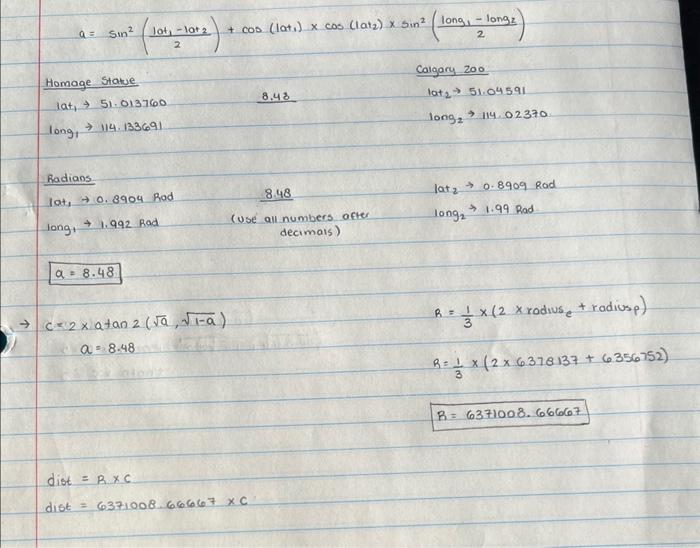 a = sin² (lat₁ - lat₂ / 2) + cos (lat₁) x cos (lat₂) x sin² (long₁ - long₂ / 2)
Homage Statue
lat₁ → 51.013760
long₁ → 114.133691
8.48
Calgary Zoo
lat₂ → 51.04591
long₂ → 114.02370
Radians
lat₁ → 0.8904 Rad
long₁ → 1.992 Rad
8.48
(use all numbers after
decimals)
lat₂ → 0.8909 Rad
long₂ → 1.99 Rad
a = 8.48
→ c = 2 x atan2 (√a, √1-a)
a = 8.48
R = 1/3 x (2 x radiusₑ + radiusₚ)
R = 1/3 x (2 x 6378137 + 6356752)
R = 6371008.66667
dist = R x C
dist = 6371008.66667 x C